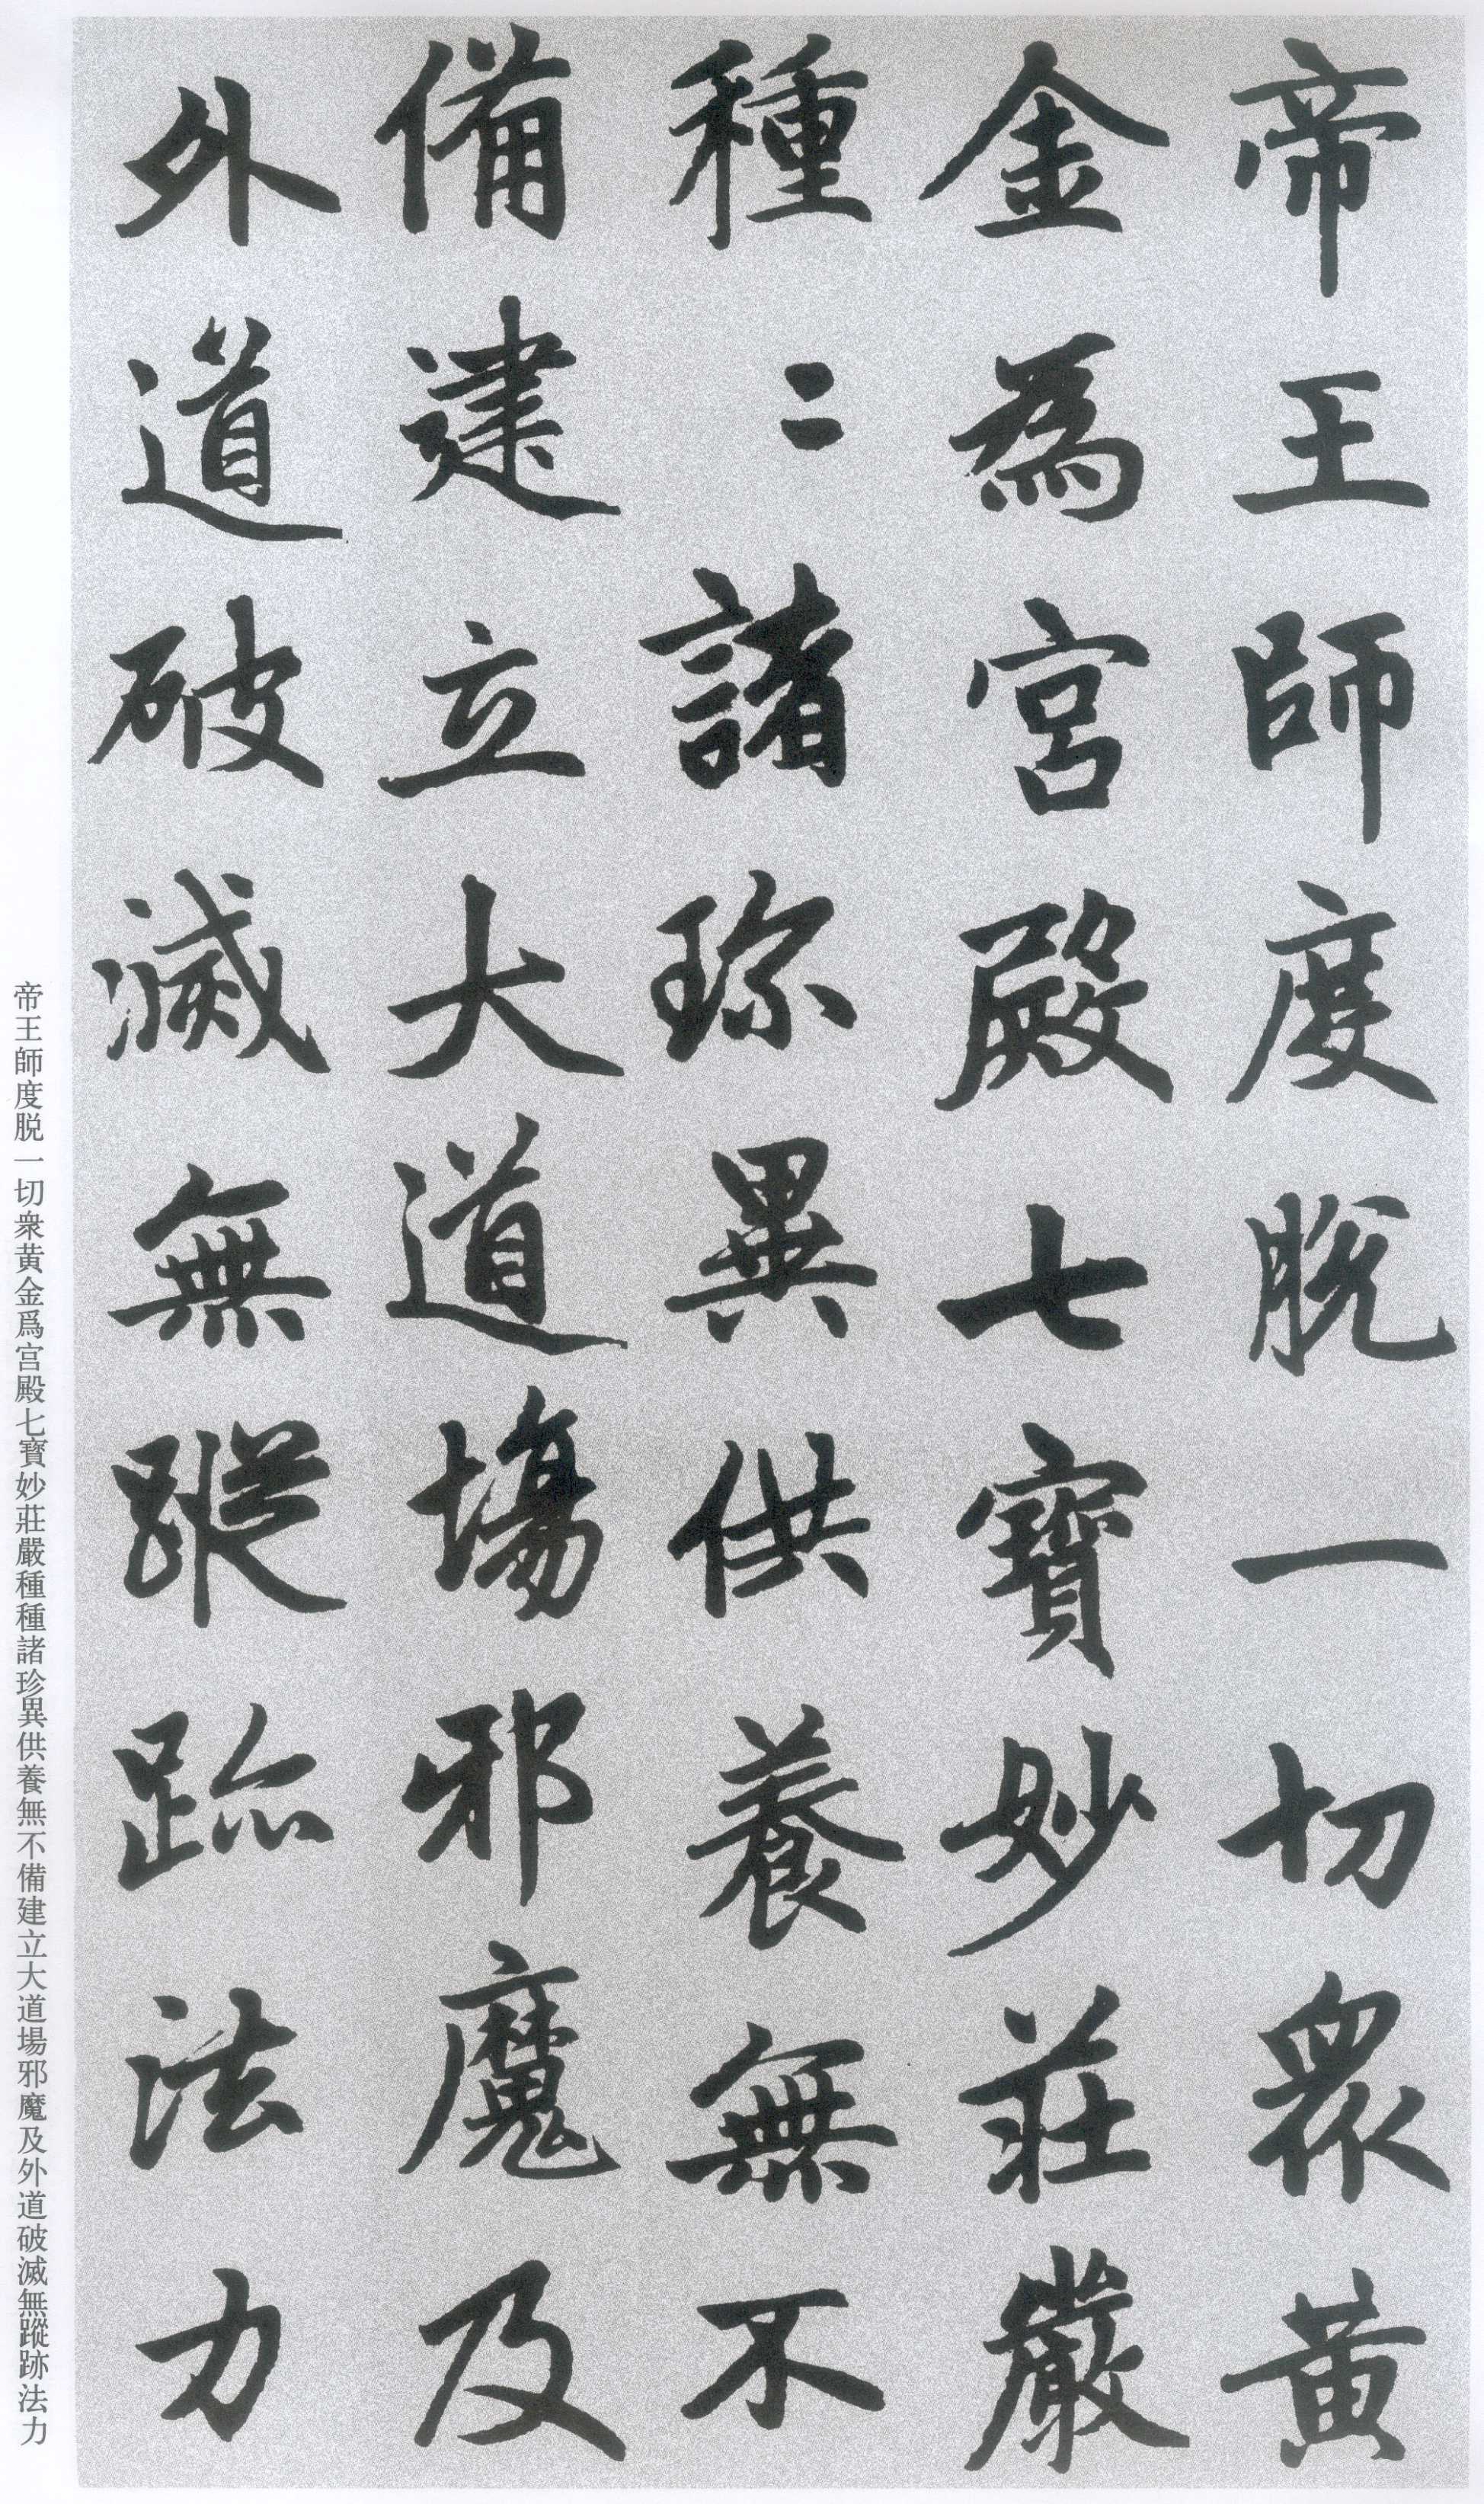 帝王師度脫一切衆黃
金為宮殿七寶妙莊嚴
種〻諸珎異供養無不
備建立大道場邪魔及
外道破滅無蹤跡法力
帝王師度脱一切衆黄金爲宫殿七寳妙莊嚴種種諸珍異供養無不備建立大道場邪魔及外道破滅無蹤跡法力